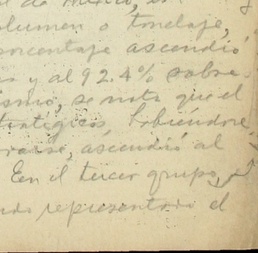 de México, es
volumen o tonelaje,
porcentaje ascendió
s y al 92.4% sobre
ismo, se nota que el
tratégicos, habiéndose
ascendió al
En el tercer grupo, el
ndo representado el